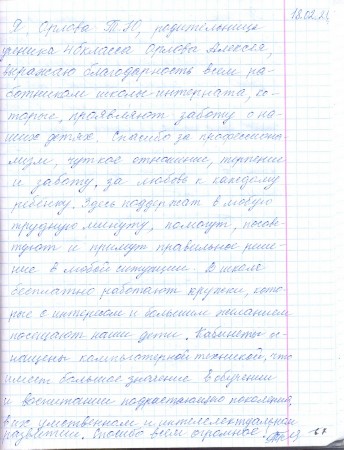 18.02.21
Я Орлова Т.Ю, родительница
ученика 4 класса Орлова Алексея,
выражаю благодарность всем ра-
ботникам школы-интерната, ко-
торые, проявляют заботу о на-
ших детях. Спасибо за профессиона-
лизм, чуткое отношение, терпение
и заботу, за любовь к каждому
ребёнку. Здесь поддержат в любую
трудную минуту, помогут, посове-
туют и примут правильное реше-
ние в любой ситуации. В школе
бесплатно работают кружки, кото-
рые с интересом и большим желанием
посещают наши дети. Кабинеты ос-
нащены компьютерной техникой, что
имеет большое значение в обучении
и воспитании подрастающего поколения,
в их умственном и интеллектуальном
развитии. Спасибо всем огромное.